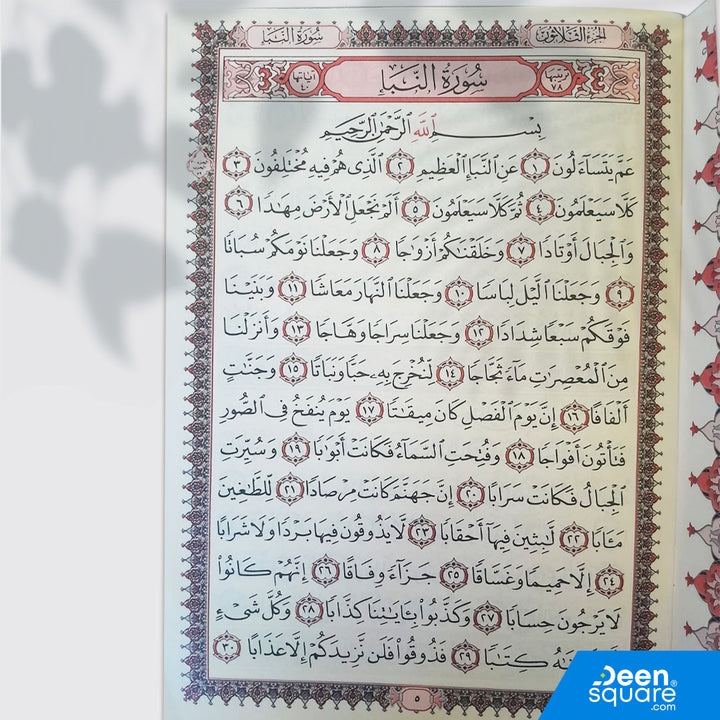 الجزء الثلاثون
سورة النبأ
ترتيبها ٧٨
سُورَةُ النَّبَإِ
آياتها ٤٠
بِسْمِ اللَّهِ الرَّحْمَٰنِ الرَّحِيمِ
عَمَّ يَتَسَآءَلُونَ ١ عَنِ ٱلنَّبَإِ ٱلْعَظِيمِ ٢ ٱلَّذِى هُمْ فِيهِ مُخْتَلِفُونَ ٣
كَلَّا سَيَعْلَمُونَ ٤ ثُمَّ كَلَّا سَيَعْلَمُونَ ٥ أَلَمْ نَجْعَلِ ٱلْأَرْضَ مِهَٰدًا ٦
وَٱلْجِبَالَ أَوْتَادًا ٧ وَخَلَقْنَٰكُمْ أَزْوَٰجًا ٨ وَجَعَلْنَا نَوْمَكُمْ سُبَاتًا
٩ وَجَعَلْنَا ٱلَّيْلَ لِبَاسًا ١٠ وَجَعَلْنَا ٱلنَّهَارَ مَعَاشًا ١١ وَبَنَيْنَا
فَوْقَكُمْ سَبْعًا شِدَادًا ١٢ وَجَعَلْنَا سِرَاجًا وَهَّاجًا ١٣ وَأَنزَلْنَا
مِنَ ٱلْمُعْصِرَٰتِ مَآءً ثَجَّاجًا ١٤ لِّنُخْرِجَ بِهِۦ حَبًّا وَنَبَاتًا ١٥ وَجَنَّٰتٍ
أَلْفَافًا ١٦ إِنَّ يَوْمَ ٱلْفَصْلِ كَانَ مِيقَٰتًا ١٧ يَوْمَ يُنفَخُ فِى ٱلصُّورِ
فَتَأْتُونَ أَفْوَاجًا ١٨ وَفُتِحَتِ ٱلسَّمَآءُ فَكَانَتْ أَبْوَٰبًا ١٩ وَسُيِّرَتِ
ٱلْجِبَالُ فَكَانَتْ سَرَابًا ٢٠ إِنَّ جَهَنَّمَ كَانَتْ مِرْصَادًا ٢١ لِّلطَّٰغِينَ
مَـَٔابًا ٢٢ لَّٰبِثِينَ فِيهَآ أَحْقَابًا ٢٣ لَّا يَذُوقُونَ فِيهَا بَرْدًا وَلَا شَرَابًا
٢٤ إِلَّا حَمِيمًا وَغَسَّاقًا ٢٥ جَزَآءً وِفَاقًا ٢٦ إِنَّهُمْ كَانُوا۟
لَا يَرْجُونَ حِسَابًا ٢٧ وَكَذَّبُوا۟ بِـَٔايَٰتِنَا كِذَّابًا ٢٨ وَكُلَّ شَىْءٍ
كِتَٰبًا ٢٩ فَذُوقُوا۟ فَلَن نَّزِيدَكُمْ إِلَّا عَذَابًا ٣٠
٥
Deen
square®
.com